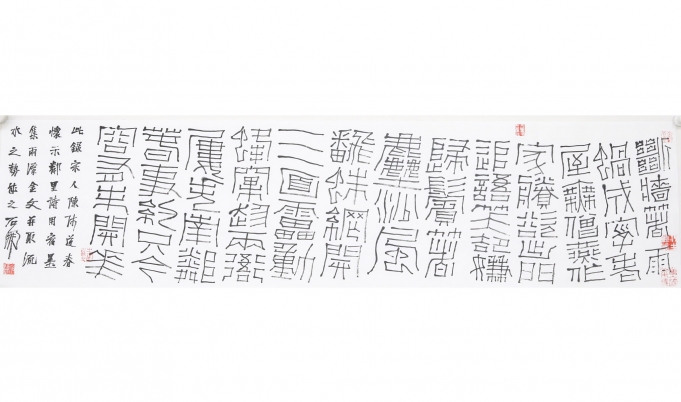 斷牆著雨
蝸成字老
屋無僧燕作
家賸欲出門
追語笑卻嫌
歸鬢著
塵沙風
翻蛛網開
三面雷動
蜂窠趁兩衙
屢失南鄰
春事約只今
容有未開花
此錄宋人陳師道春
懷示鄰里詩用宿墨
集兩漢金文並取流
水之勢爲之